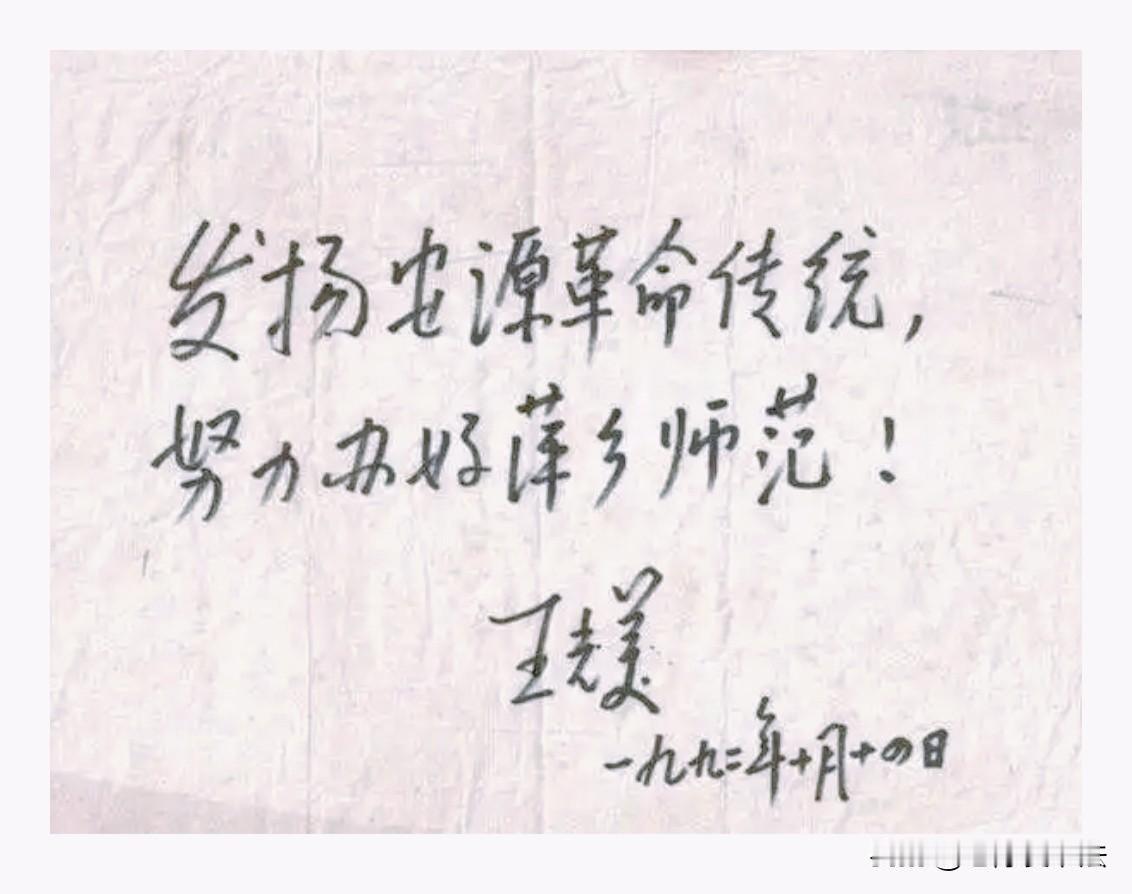 发扬安源革命传统，
努力办好萍乡师范！
王光美
一九九二年十月十四日